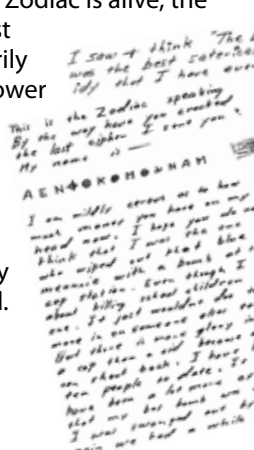 Zodiac is alive, the
st
rily
ower
y
d.
I saw + think "The
was the best saterical
idy that I have ever
This is the Zodiac speaking
By the way have you cracked
the last cipher I sent you ?
My name is —
A E N M N A M
I am mildly cerous as to how
much money you have on my
head now. I hope you do not
think that I was the one
who wiped out that blue
meannie with a bomb at the
cop station. Even though I
about killing school children
one. It just wouldnt doo to
move in on someone elses
But there is more glory in
a cop than a cid because a
can shoot back. I have
ten people to date. It
have been a lot more
that my bus bomb was a
I was swamped out by
rain we had a while